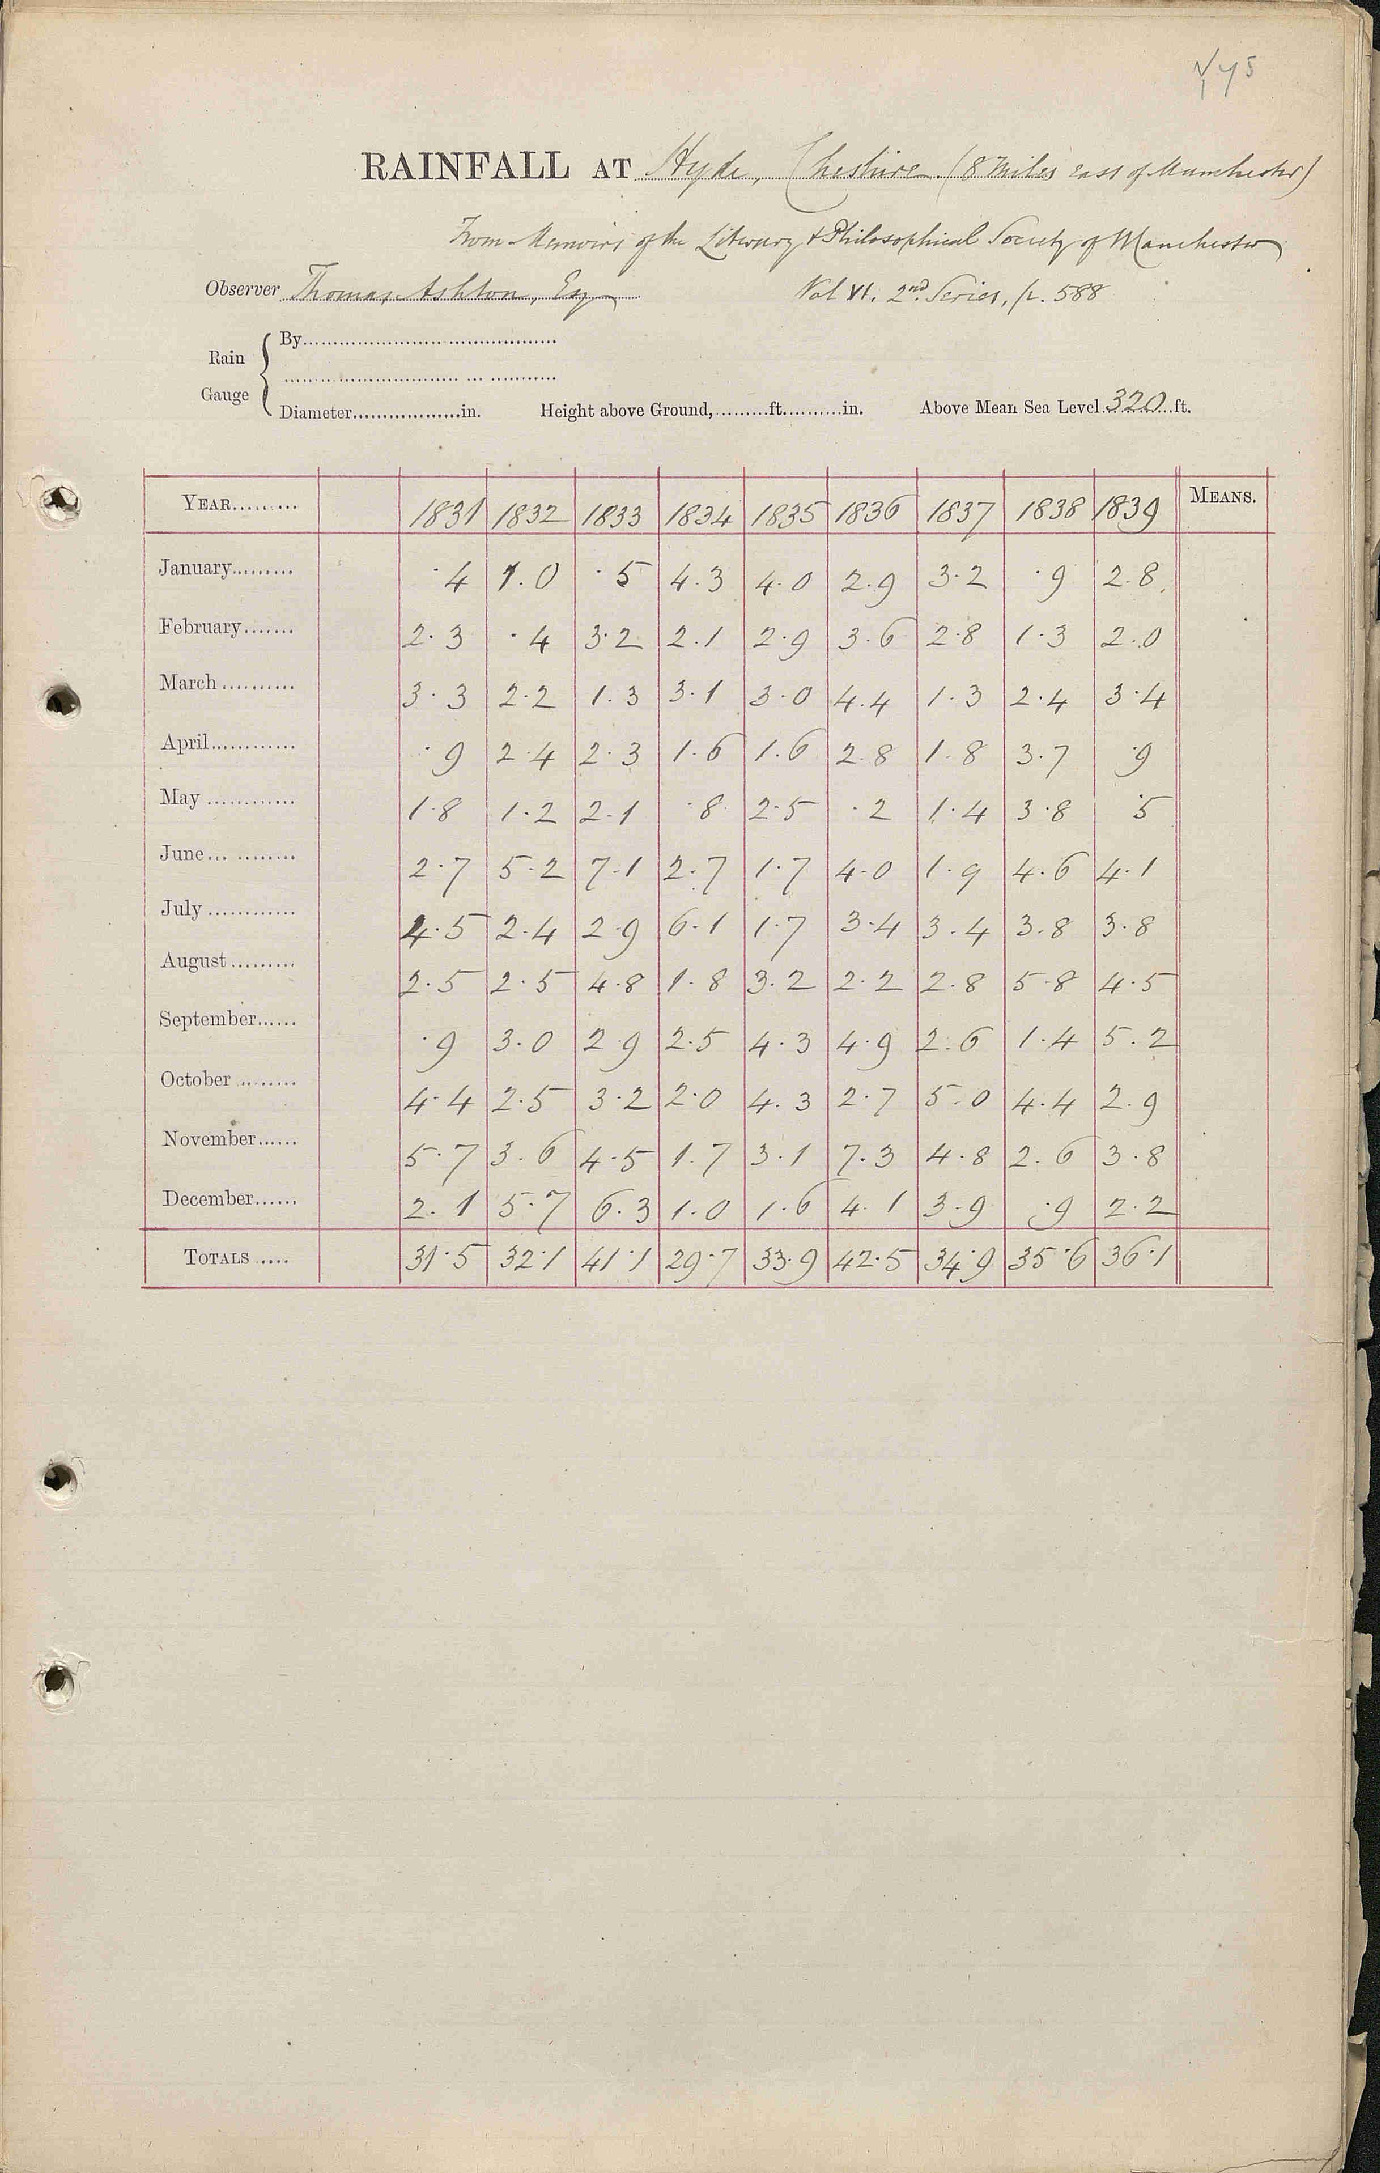 RAINFALL AT Hyde, Cheshire (8 Miles east of Manchester)
From Memoirs of the Literary & Philosophical Society of Manchester
Observer Thomas Ashton, Esq Vol VI. 2nd. Series, p. 588
Rain Gauge { By
Diameter in. Height above Ground, ft. in. Above Mean Sea Level 320 ft.
YEAR 1831 1832 1833 1834 1835 1836 1837 1838 1839 MEANS.
January ·4 1.0 ·5 4.3 4.0 2.9 3.2 ·9 2.8
February 2.3 ·4 3.2 2.1 2.9 3.6 2.8 1.3 2.0
March 3.3 2.2 1.3 3.1 3.0 4.4 1.3 2.4 3.4
April ·9 2.4 2.3 1.6 1.6 2.8 1.8 3.7 ·9
May 1.8 1.2 2.1 ·8 2.5 ·2 1.4 3.8 ·5
June 2.7 5.2 7.1 2.7 1.7 4.0 1.9 4.6 4.1
July 4.5 2.4 2.9 6.1 1.7 3.4 3.4 3.8 3.8
August 2.5 2.5 4.8 1.8 3.2 2.2 2.8 5.8 4.5
September ·9 3.0 2.9 2.5 4.3 4.9 2.6 1.4 5.2
October 4.4 2.5 3.2 2.0 4.3 2.7 5.0 4.4 2.9
November 5.7 3.6 4.5 1.7 3.1 7.3 4.8 2.6 3.8
December 2.1 5.7 6.3 1.0 1.6 4.1 3.9 ·9 2.2
TOTALS 31.5 32.1 41.1 29.7 33.9 42.5 34.9 35.6 36.1